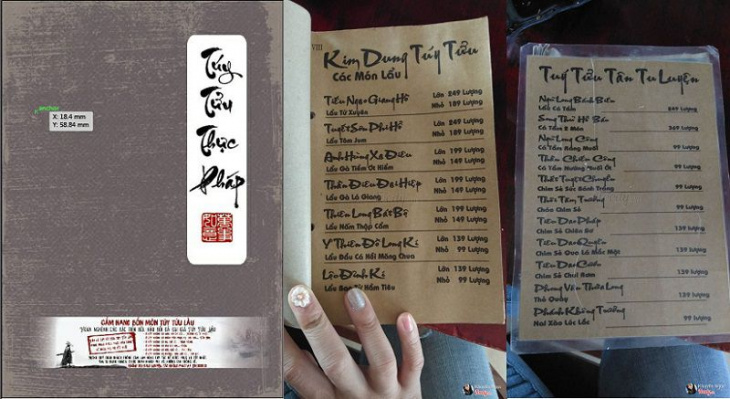 Túy
Tửu
Thực
Pháp
anchor
X: 18.4 mm
Y: 58.84 mm
CẨM NANG BỔN MÓN TÚY TỬU LẦU
VIII
Kim Dung Túy Tửu
Các Món Lẩu
Tiếu Ngạo Giang Hồ Lớn 249 Lượng
Lẩu Tứ Xuyên Nhỏ 189 Lượng
Tuyết Sơn Phi Hồ Lớn 249 Lượng
Lẩu Tôm Jum Nhỏ 189 Lượng
Anh Hùng Xạ Điêu Lớn 199 Lượng
Lẩu Gà Tiềm Ớt Hiểm Nhỏ 149 Lượng
Thần Điêu Đại Hiệp Lớn 199 Lượng
Lẩu Gà Lá Giang Nhỏ 149 Lượng
Thiên Long Bát Bộ Lớn 199 Lượng
Lẩu Nấm Thập Cẩm Nhỏ 149 Lượng
Ỷ Thiên Đồ Long Kí Lớn 139 Lượng
Lẩu Đầu Cá Hồi Măng Chua Nhỏ 99 Lượng
Lộc Đỉnh Kí Lớn 139 Lượng
Lẩu Nấm Tiêu Nhỏ 99 Lượng
Tuý Tửu Tân Tu Luyện
Ngũ Long Bách Biến
Lẩu Cá Tầm 249 Lượng
Song Thủ Hổ Bác
Cá Tầm 2 Món 269 Lượng
Ngũ Long Công
Cá Tầm Rang Muối 99 Lượng
Thần Chiến Công
Cá Tầm Nướng Muối Ớt 99 Lượng
Chim Sẻ Xúc Bánh Tráng 99 Lượng
Thất Tâm Trường
Cháo Chim Sẻ 99 Lượng
Tiên Đạo Pháp
Chim Sẻ Chiên Bơ 99 Lượng
Tiên Đạo Quyền
Chim Sẻ Quay Lá Mắc Mật 99 Lượng
Tiên Đạo Cước
Chim Sẻ Chui Rơm 99 Lượng
Phong Vân Thừa Long
Thỏ Quay 99 Lượng
Phách Không Trường
Nai Xào Lúc Lắc 99 Lượng